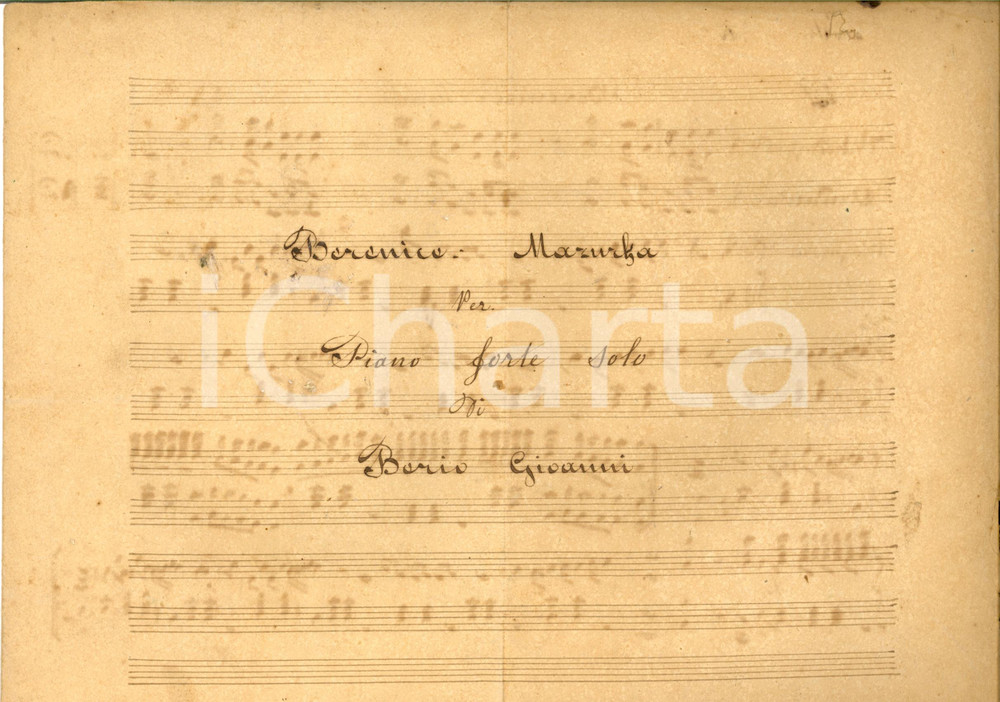 Berenice. Mazurka
Per.
Piano forte solo
Di
Berio Gioanni
iCharta